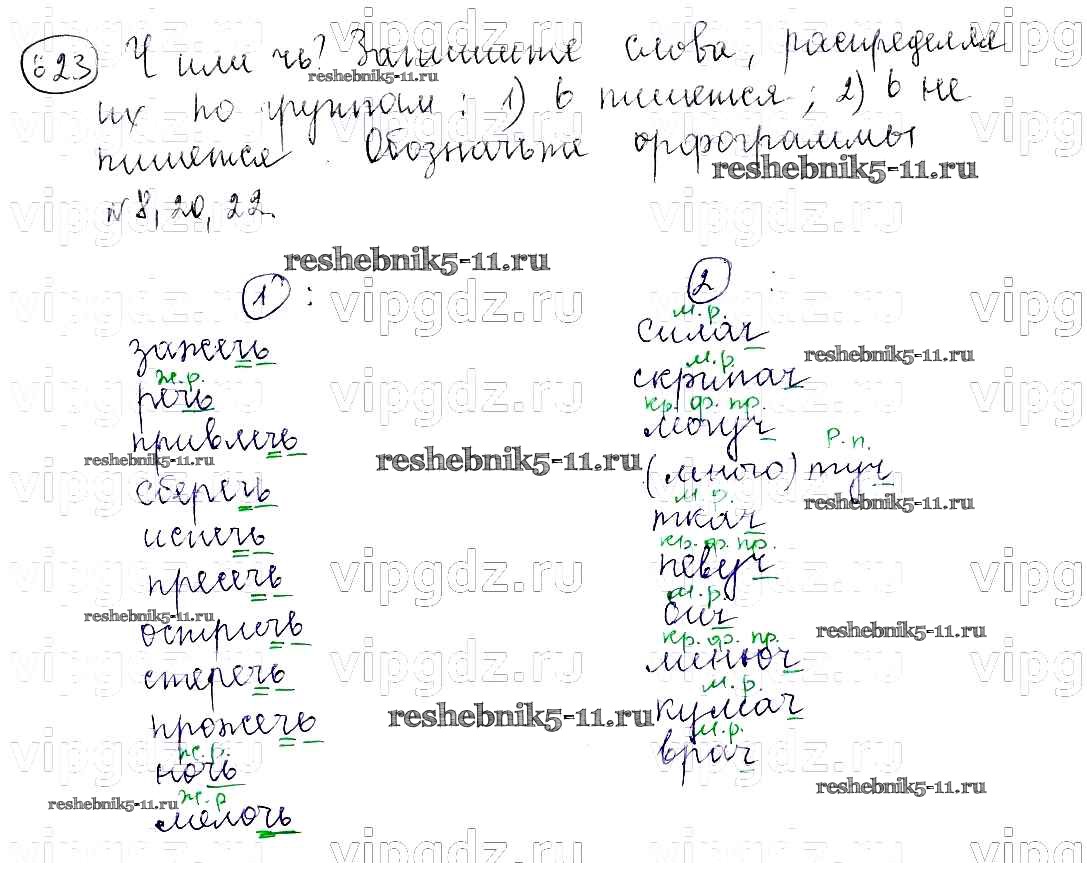 623 Ч или чь? Запишите слова, распределяя
их по группам: 1) ь пишется; 2) ь не
пишется. Обозначьте орфограммы
№ 8, 20, 22.
1 :
зажечь
ж.р.
речь
привлечь
сберечь
испечь
пресечь
остричь
стеречь
прожечь
ж.р.
ночь
ж.р
мелочь
2 :
м.р.
силач
м.р
скрипач
кр. ф. пр.
могуч
Р.п.
(много) туч
м.р.
ткач
кр. ф. пр.
певуч
м.р.
бич
кр. ф. пр.
линюч
м.р.
кумач
м.р.
врач
reshebnik5-11.ru
vipgdz.ru